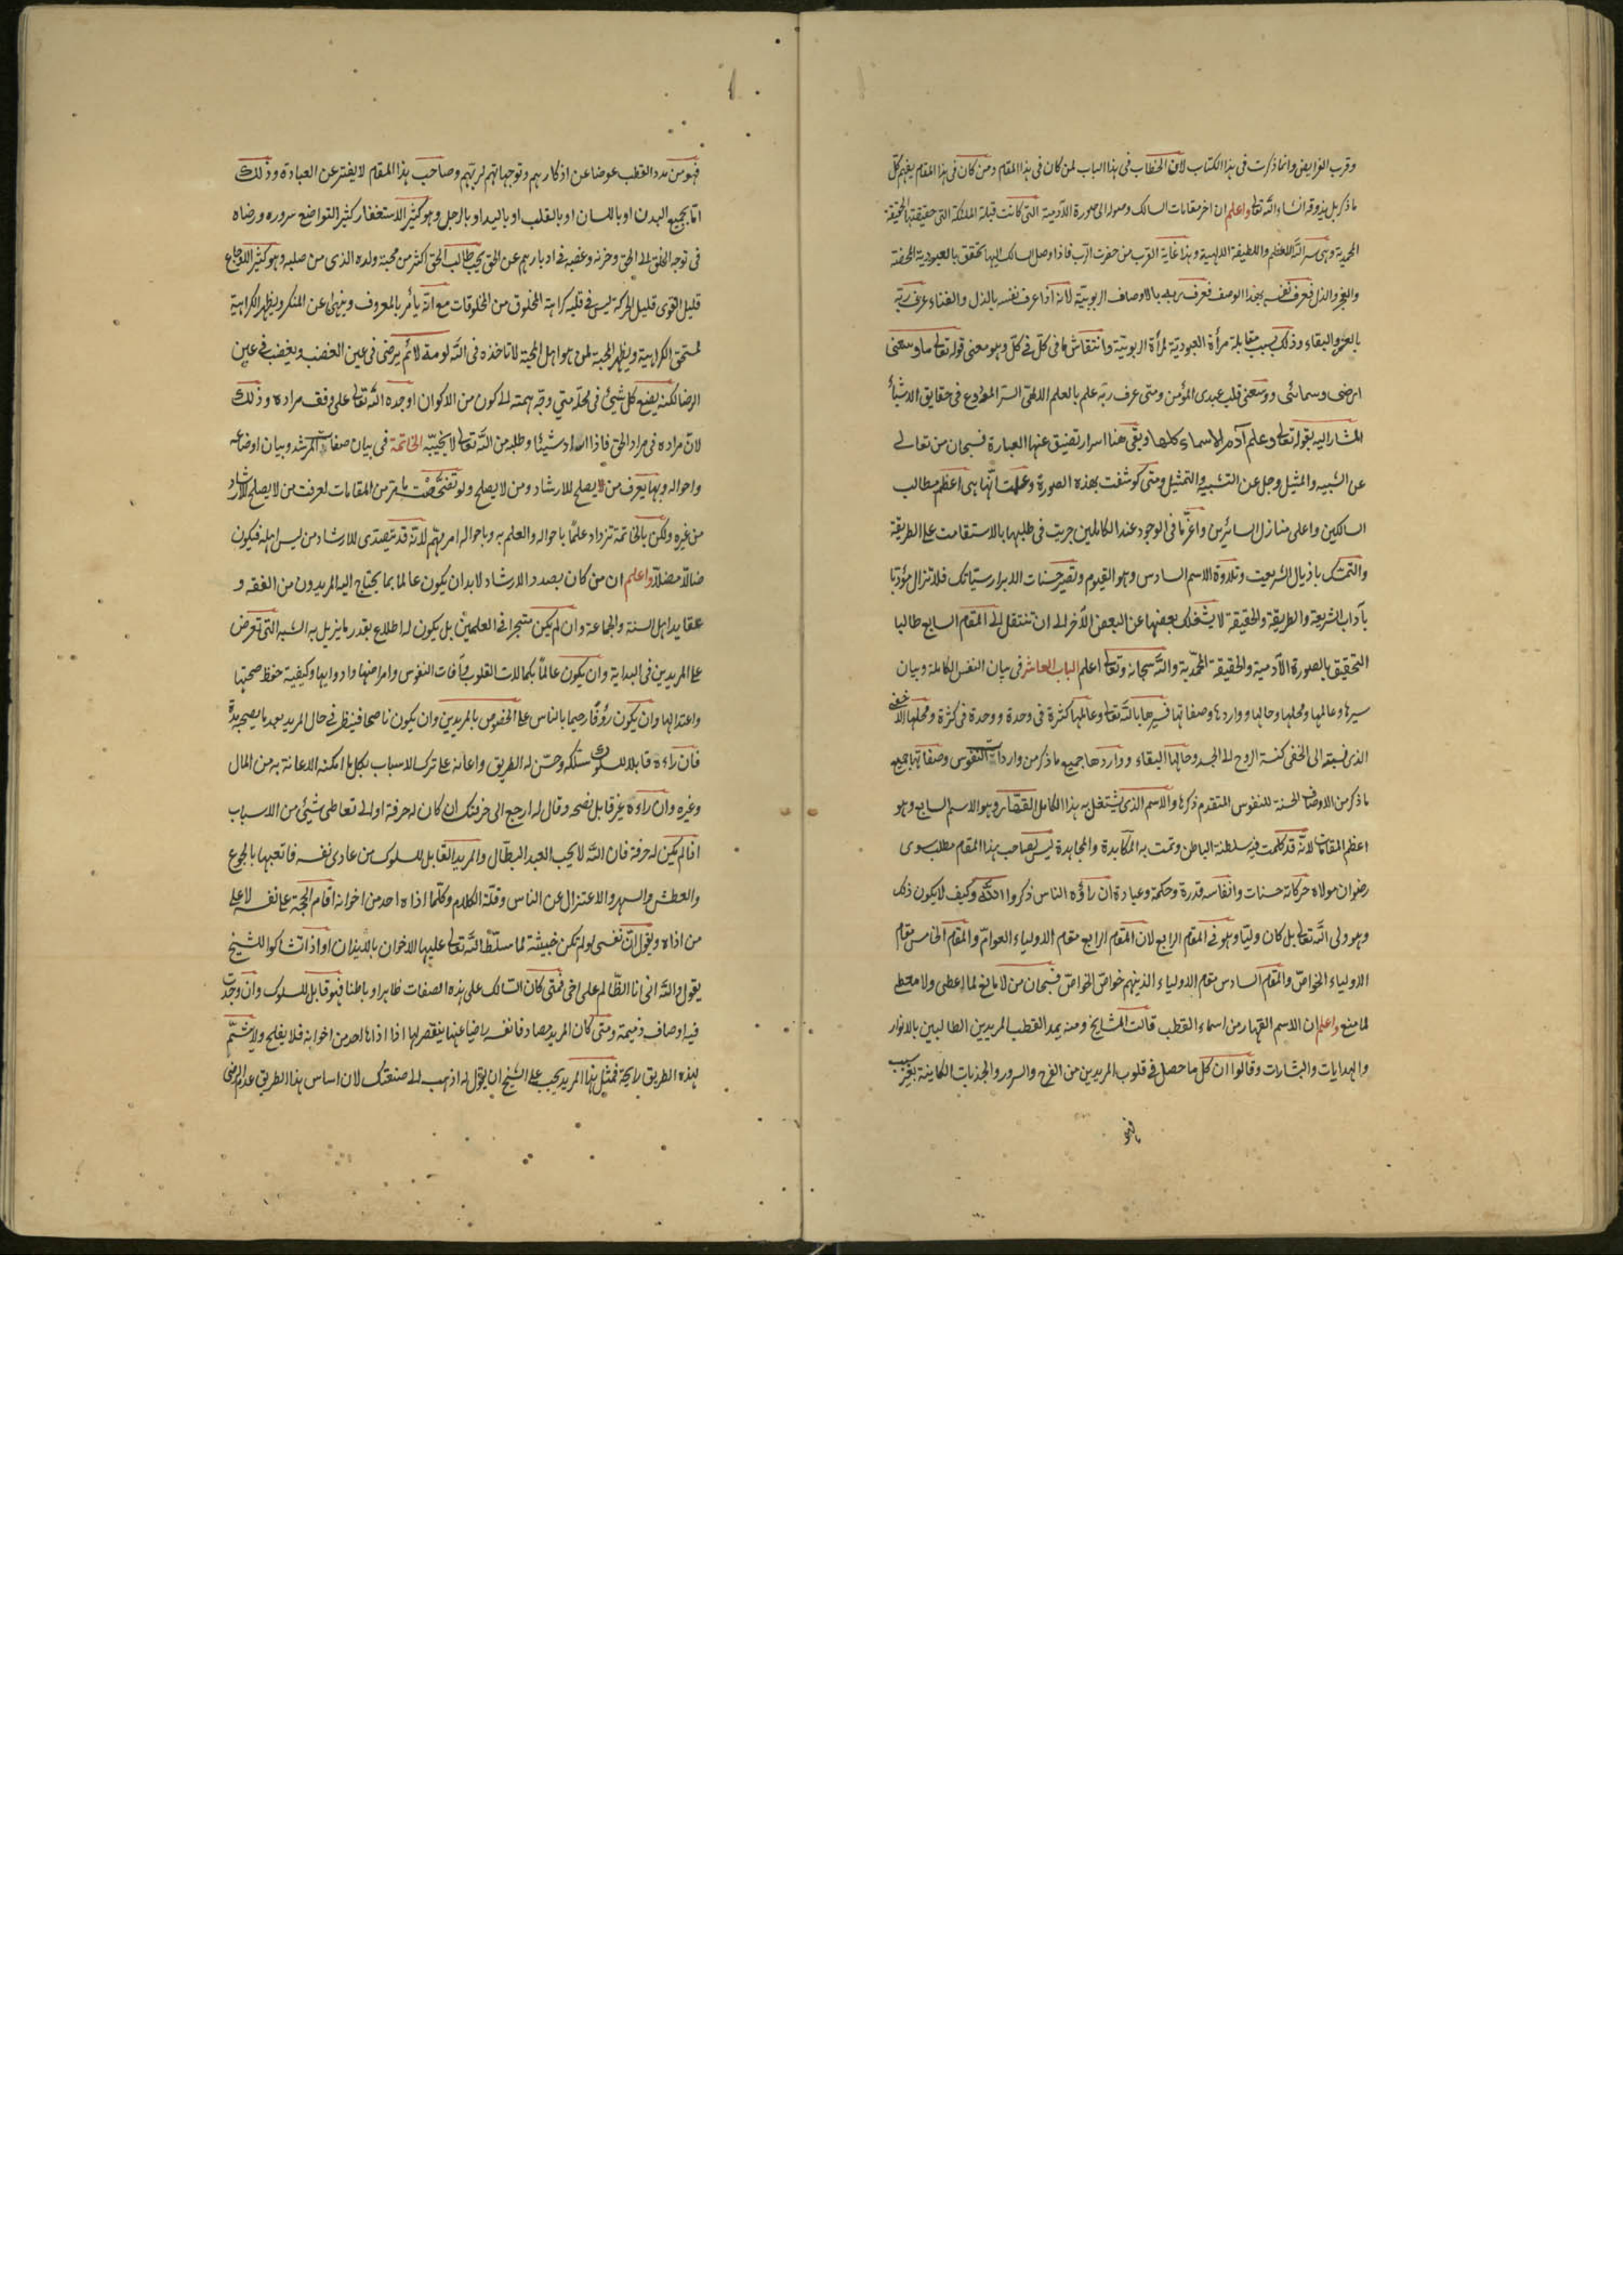 وقرب الفرايض وانما ذكرت فى هذا الكتاب لان الخطاب فى هذا الباب لمن كان فى هذا المقام ومن كان فى هذا المقام يفهم كل
ما ذكر بل يذوقه انشاء الله تعالى واعلم ان اخر مقامات السالك وصوله الى صورة الآدمية التى كانت قبلة الملئكة التى حقيقتها الحقيقة
المحمدية وهى سر الله الاعظم واللطيفة الالهية وهذا غاية القرب من حضرت الرب فاذا وصل السالك اليها تحقق بالعبودية المحضة
والعجز والذل فعرف نفسه بهذا الوصف فعرف ربه بالاوصاف الربوبيّة لانه اذا عرف نفسه بالذل والفناء عرف ربّه
بالعز والبقاء وذلك بسبب مقابلة مرأة العبوديّة لمرأة الربوبيّة وانتقاش ما فى كلّ فى كلّ وهو معنى قوله تعالى ما وسعنى
ارضى وسمائى ووسعنى قلب عبدى المؤمن ومتى عرف ربّه علم بالعلم اللدنى السرّ المودوع فى حقايق الاشيأ
المشار اليه بقوله تعالى وعلم آدم الاسماء كلها وبقى هنا اسرار تضيق عنها العبارة فسبحان من تعالى
عن الشبيه والمثيل وجل عن التشبيه والتمثيل ومتى كوشفت بهذه الصورة وعلمت انّها هى اعظم مطالب
السالكين واعلى منازل السائرين واعزّ ما فى الوجود عند الكاملين جريت فى طلبها بالاستقامت على الطريقة
والتمسّك باذيال الشريعت وتلاوة الاسم السادس وهو القيوم وتصير حسنات الابرار سيّاتك فلا تزال مؤدّبا
بآداب الشريعة والطريقة والحقيقة لا يشغلك بعضها عن البعض الآخر الى ان تنتقل الى المقام السابع طالبا
التحقيق بالصورة الآدمية والحقيقة المحمّدية والله سبحانه وتعالى اعلم الباب العاشر فى بيان النفس الكاملة وبيان
سيرها وعالمها ومحلها وحالها وواردها وصفاتها فسيرها بالله تعالى وعالمها كثرة فى وحدة ووحدة فى كثرة ومحلها الاخفى
الذى نسبته الى الخفى كنسبة الروح الى الجسد وحالها البقاء وواردها جميع ما ذكر من واردات النفوس وصفاتها جميع
ما ذكر من الاوصاف الحسنة للنفوس المتقدم ذكرها والاسم الذى يشتغل به هذا الكامل القهّار وهو الاسم السابع وهو
اعظم المقامات لانّه قد كملت فيه سلطنة الباطن وتمت به المكابدة والمجاهدة ليس لصاحب هذا المقام مطلب سوى
رضوان مولاه حركاته حسنات وانفاسه قدرة وحكمة وعبادة ان راؤه الناس ذكروا الله وكيف لا يكون ذلك
وهو ولى الله تعالى بل كان وليّا وهو فى المقام الرابع لان المقام الرابع مقام الاولياء العوامّ والمقام الخامس مقام
الاولياء الخواصّ والمقام السادس مقام الاولياء الذينهم خواصّ الخواصّ فسبحان من لا مانع لما اعطى ولا معطى
لما منع واعلم ان الاسم القهار من اسماء القطب قالت المشايخ ومنه يمد القطب المريدين الطالبين بالانوار
والهدايات والبشارات وقالوا ان كل ما حصل فى قلوب المريدين من الفرح والسرور والجذبات الكاينة بغير سبب
فهو من مدد القطب عوضا عن اذكارهم وتوجهاتهم لربهم وصاحب هذا المقام لا يفتر عن العبادة وذلك
اما بجميع البدن او باللسان او بالقلب او باليد او بالرجل وهو كثير الاستغفار كثير التواضع سروره ورضاه
فى توجه الخلق الى الحق وحزنه وغضبه فى ادبارهم عن الحق يحب طالب الحق اكثر من محبته ولده الذى من صلبه وهو كثير الاوجاع
قليل القوى قليل الحركة ليس فى قلبه كراهة لمخلوق من المخلوقات مع انّه يأمر بالمعروف وينهى عن المنكر ويظهر الكراهية
لمستحق الكراهية ويظهر المحبة لمن هو اهل المحبة لا تاخذه فى الله لومة لائم يرضى فى عين الغضب ويغضب فى عين
الرضا لكنه يضع كل شئ فى محله متى وجّه همته الى كون من الاكوان اوجده الله تعالى على وفق مراده وذلك
لان مراده فى مراد الحق فاذا اراد شيئا وطلبه من الله تعالى لا يخيبه الخاتمة فى بيان صفات المرشد وبيان اوضاعه
واحواله وبها يعرف من يصلح للارشاد ومن لا يصلح ولو تفحّصت ما مر من المقامات لعرفت من لا يصلح للارشاد
من غيره ولكن بالخاتمة تزداد علما باحواله والعلم به وباحواله امر مهم لانه قد يتصدى للارشاد من ليس اهله فيكون
ضالّا مضلّا واعلم ان من كان بصدد الارشاد لا بد ان يكون عالما بما يحتاج اليه المريدون من الفقه و
عقايد اهل السنة والجماعة وان لم يكن متبحرا فى العلمين بل يكون له اطلاع بقدر ما يزيل به الشبه التى تعرض
على المريدين فى البداية وان يكون عالماً بكمالات القلوب وآفات النفوس وامراضها وادوايها وكيفية حفظ صحتها
واعتدالها وان يكون رؤفًا رحيما بالناس على الخصوص بالمريدين وان يكون ناصحا فينظر فى حال المريد بعد ما يصحبه مدة
فان رآه قابلا للسلوك سلكه وحسّن له الطريق واعانه على ترك الاسباب بكل ما امكنه الاعانة به من المال
وغيره وان رآه غير قابل نصحه وقال له ارجع الى حرفتك ان كان له حرفة او الى تعاطى شيئ من الاسباب
اذا لم يكن له حرفة فان الله لا يحب العبد البطّال والمريد القابل للسلوك من عادى نفسه فاتعبها بالجوع
والعطش والسهر والاعتزال عن الناس وقلّة الكلام وكلّما اذاه احد من اخوانه اقام الحجة على نفسه لا على
من اذاه ويقول انّ نفسى لو لم تكن خبيثة لما سلّط الله تعالى عليها الاخوان بالايذان او اذا تشاكوا للشيخ
يقول والله انى انا الظّالم على اخى فمتى كان السّالك على هذه الصفات ظاهرا وباطنا فهو قابل للسلوك وان وجدت
فيه اوصاف ذميمة ومتى كان المريد مصادفا نفسه راضيا عنها ينتصر لها اذا اذاها احد من اخوانه فلا يفلح ولا يشمّ
لهذه الطريق رايحة فمثل هذا المريد يجب على الشيخ ان يقول له اذهب الى صنعتك لان اساس هذا الطريق عدم الرضى